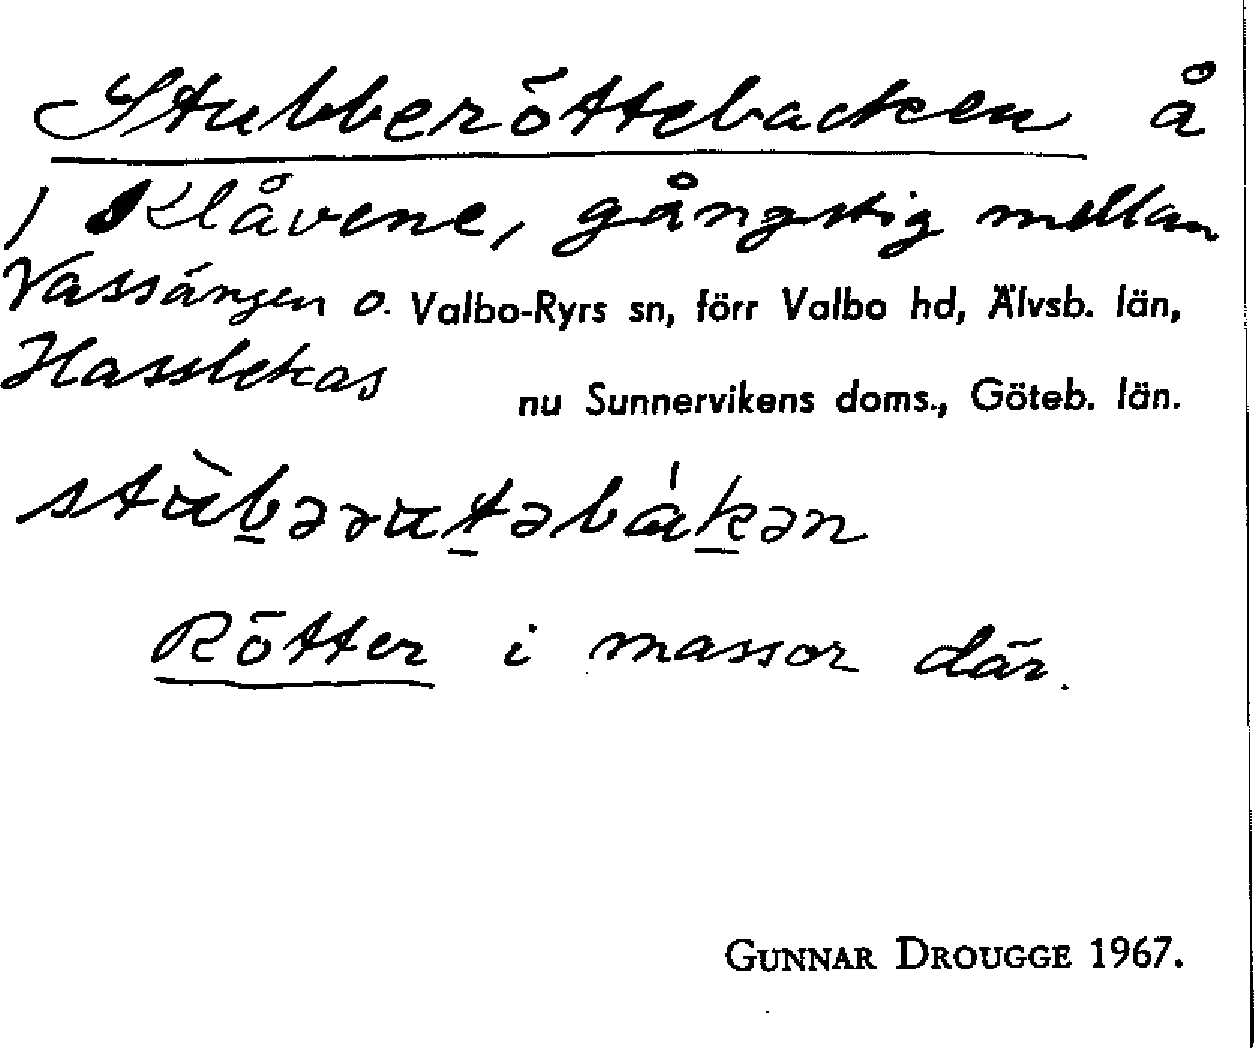 Stubberöttebacken å
1 Klåvene, gångstig mellan
Vassängen o. Valbo-Ryrs sn, förr Valbo hd, Älvsb. län,
Hasslekas nu Sunnervikens doms., Göteb. län.
stùb̲ərut̲əbák̲ən
Rötter i massor där.
GUNNAR DROUGGE 1967.